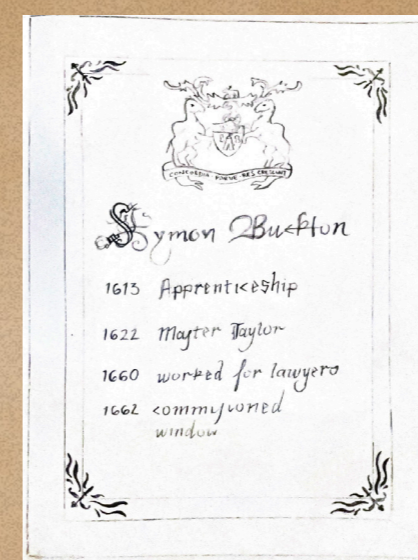 CONCORDIA PARVAE RES CRESCUNT
Symon Buckton
1613 Apprenticeship
1622 Master Taylor
1660 worked for lawyers
1662 commissioned
window